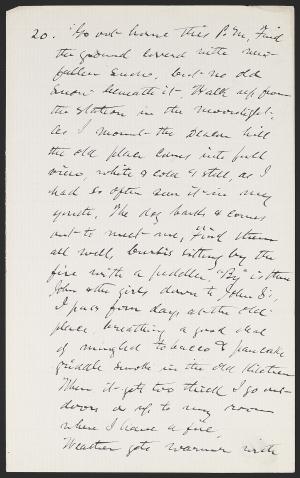 20. Go out home this P.M. Find
the ground covered with new
fallen snow, but no old
snow beneath it. Walk up from
the station in the moonlight.
As I mount the Deacon hill
the old place comes into full
view, white & cold & still, as I
had so often seen it in my
youth. The dog barks & comes
out to meet me, Find them
all well, Curtis sitting by the
fire with a peddler. "By" is there
John & the girls down to John S's,
I pass four days at the old
place, breathing a good deal
of mingled tobacco & pancake
griddle smoke in the old kitchen
When it gets too thick I go out-
doors or up to my room
where I have a fire,
Weather gets warmer with